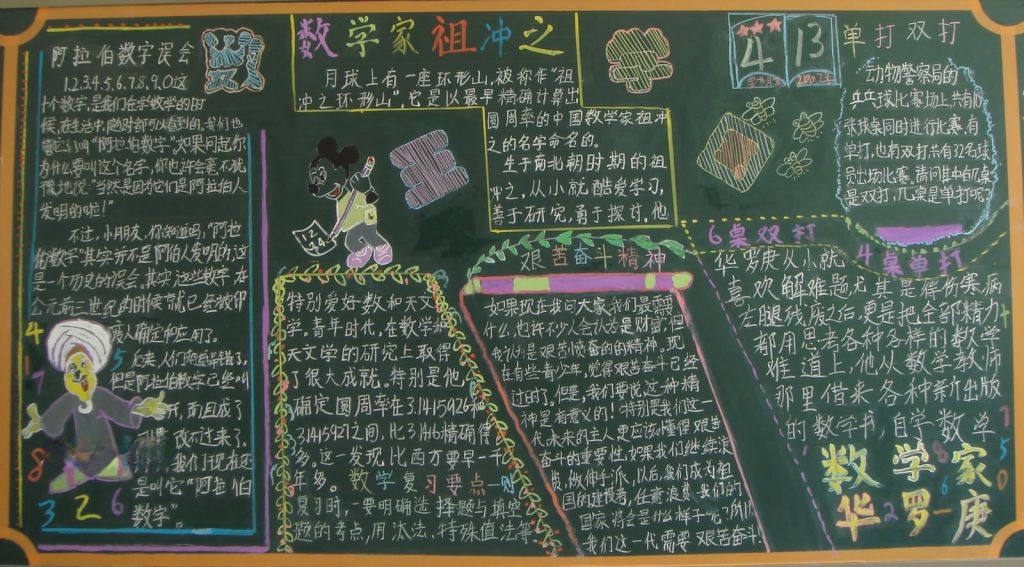 阿拉伯数字误会
1.2.3.4.5.6.7.8.9.0这
十个数字,是我们在学数学的时
候,在生活中,随时都可以看到的,我们也
管它们叫"阿拉伯数字",如果问起你
为什么要叫这个名字,你也许会毫不犹
豫地说:"当然是因为它们是阿拉伯人
发明的啦!"
不过,小朋友,你知道吗,"阿拉
伯数字"其实并不是阿伯人发明的,这
是一个历史的误会,其实,这些数字,在
公元前三世纪的时候就已经被印
度人确定和应用了。
后来,人们知道弄错了,
但是阿拉伯数字已经叫
开,而且成了
改不过来了.
我们现在还
是叫它"阿拉伯
数字"。
4
1
7
5
8
3
2
6
数学家祖冲之
月球上有一座环形山,被称作"祖
冲之环形山",它是以最早精确计算出
圆周率的中国数学家祖冲
之的名字命名的。
生于南北朝时期的祖
冲之,从小就酷爱学习,
善于研究,勇于探讨,他
特别爱好数和天文
学。青年时代,在数学和
天文学的研究上取得
了很大成就。特别是他
确定圆周率在3.1415926和
3.1415927之间,比3.1416精确得
多。这一发现,比西方要早一千
年多。
数学复习要点
复习时,要明确选择题与填空
题的考点,用汰法、特殊值法等.
艰苦奋斗精神
如果现在我问大家,我们最需要
什么,也许不少人会认为是财富,但
我认为是艰苦愤奋的的精神。现
在有些青少年,觉得艰苦奋斗已经
过时了,但是,我们要说这一种精
神是有意义的!特别是我们这一
代未来的主人更应该懂得艰苦
奋斗的重要性,如果我们继续浪
费,做伸手派,以后,我们成为祖
国的建设者,任意浪费,我们的
国家将会是什么样子呢?所以
我们这一代需要艰苦奋斗.
4 13
单打双打
动物警察局的
乒乓球比赛场上,共有10
张球桌同时进行比赛,有
单打,也有双打共有32名球
员出场比赛,请问其中的几桌
是双打,几桌是单打呢?
6桌双打
4桌单打
华罗庚从小就
喜欢解难题尤其是得伤寒病
左腿残废之后,更是把全部精力
都用思考各种各样的数学
难道上,他从数学教师
那里借来各种新出版
的数学书 自学数学
数学家
华罗庚